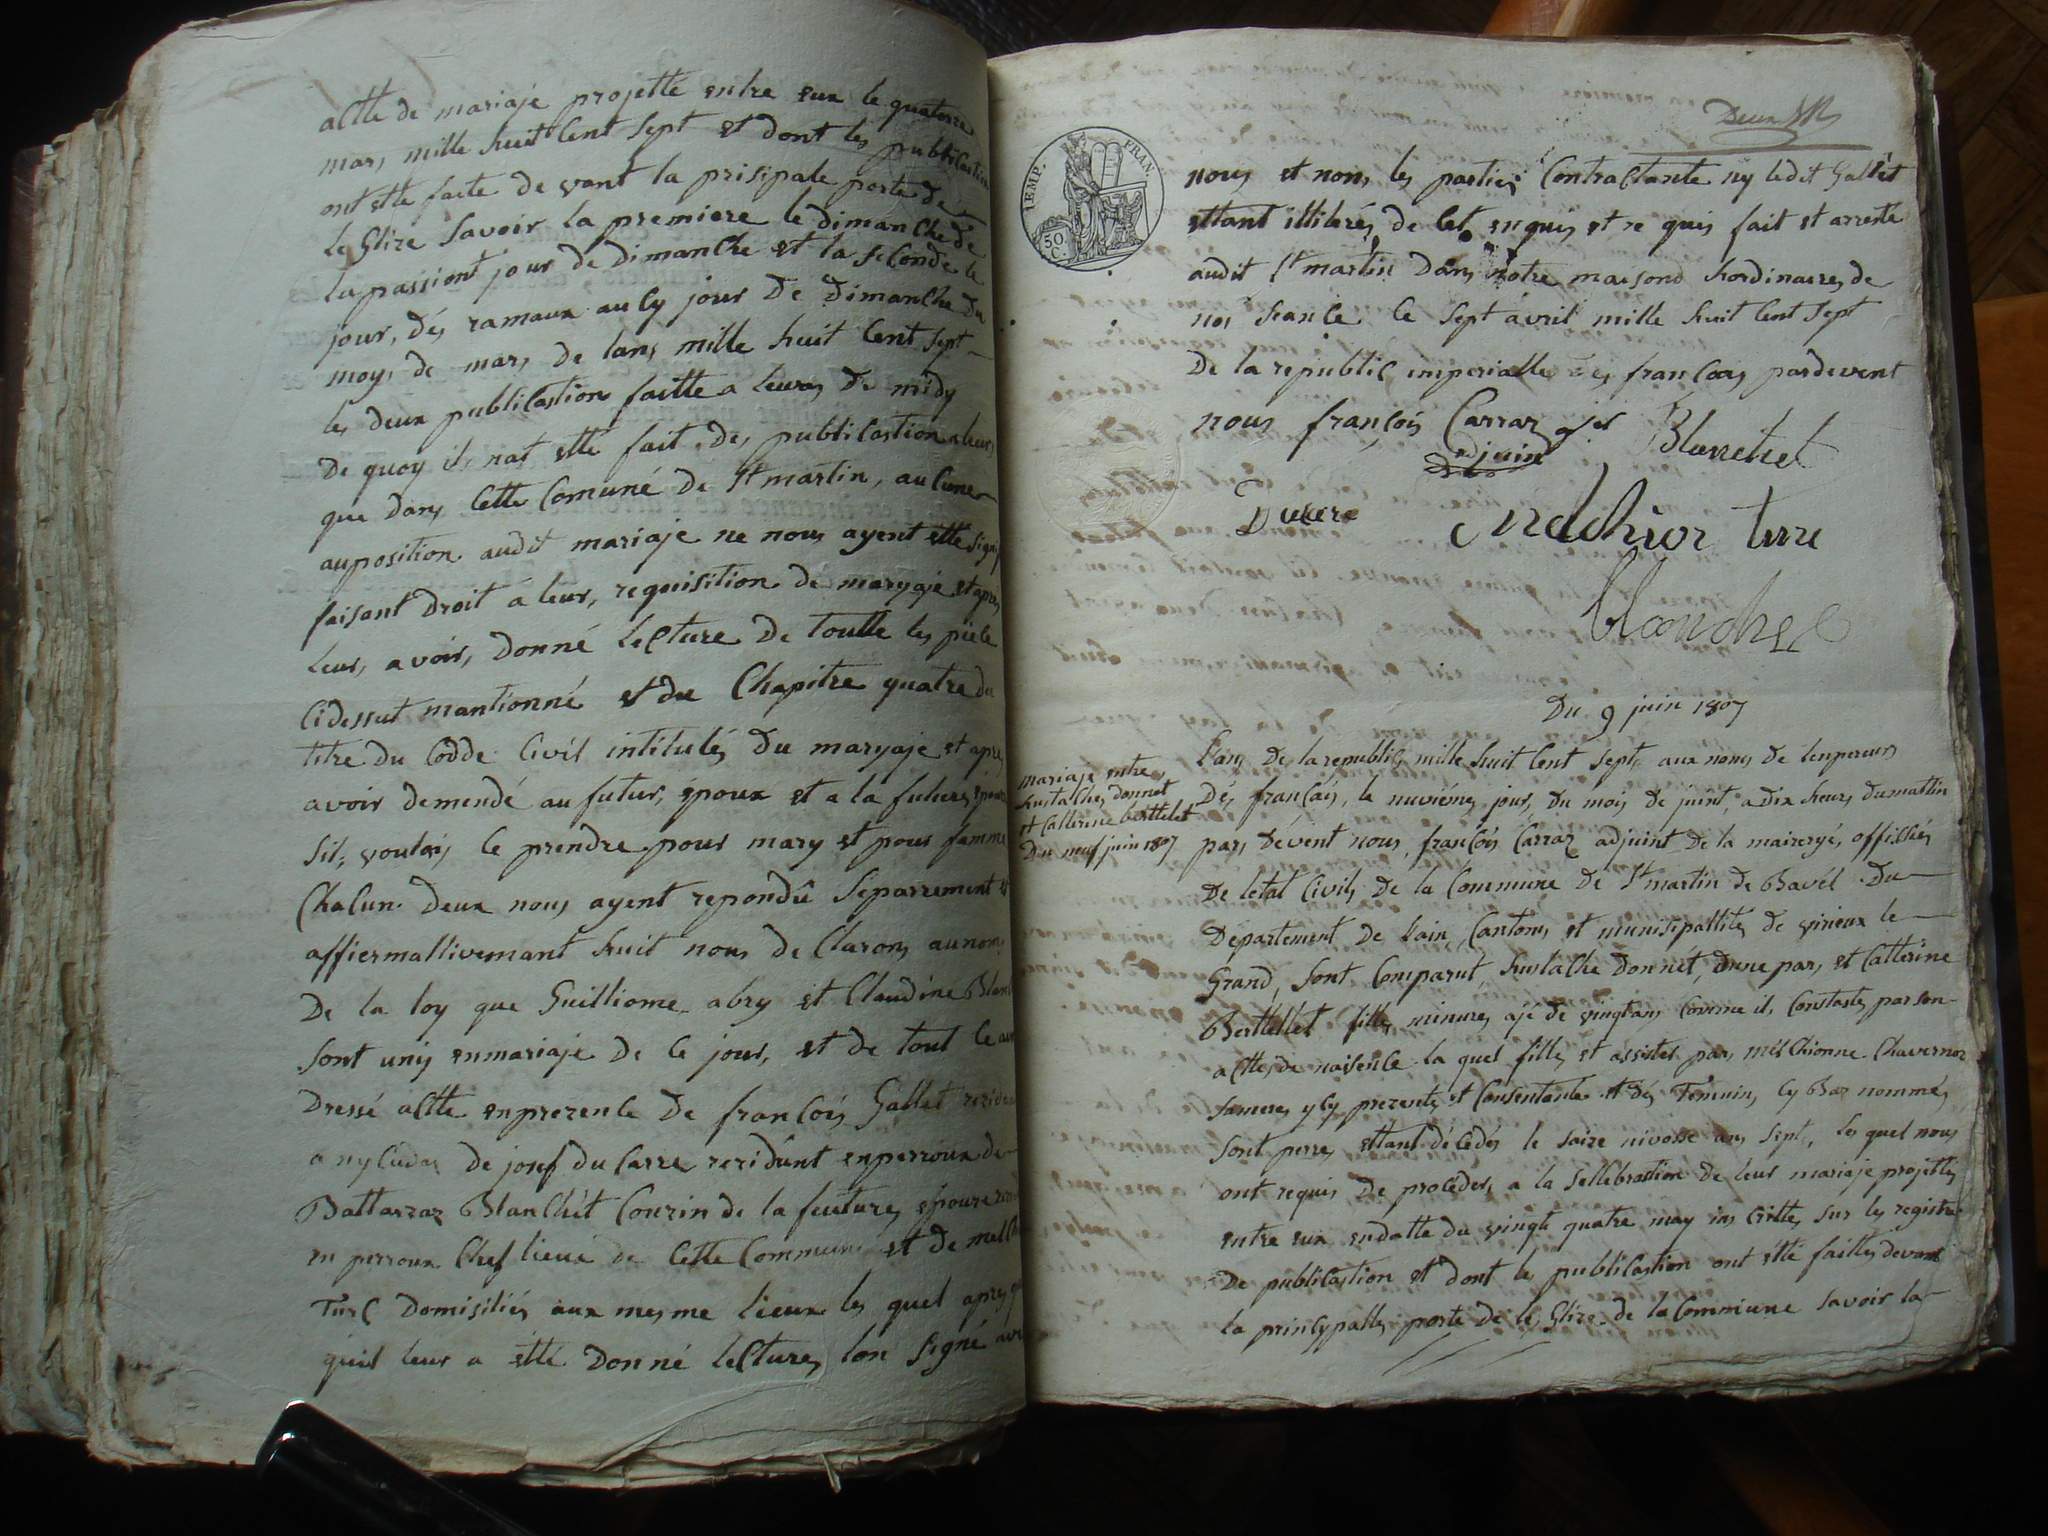 actte de mariaje projetté entre eux le quatorze
mars mille huit Cent Sept et dont les publication
ont etté faite de vant la prisipale porte de
le Glize Savoir la premiere le dimanche de
la passiont jour de Dimanche et la seConde le
jour, dés ramaux au Cy jour De Dimanche Du
moys de mars de lans mille huit Cent Sept
les deux publiCastion faitte a leures De midy
De quoy il nat etté fait des publiCastion alleurs
que Dans Cette Comuné de St martin, auCune
auposition audit mariaje ne nous ayent etté signi
faisant Droit a leur, requisition de maryaje et apres
leur, avoir, Donné leCture De toutte les pieCe
Cidessut mantionné et du Chapitre quatre du
titre du Codde Civil intitulés Du maryaje et apres
avoir demendé au futur, époux et a la future, épouze
Sil, voulois le prendre pour mary et pour famme
ChaCun Deux nous ayent repondû Séparrement et
affiermattivemant huit nous de Clarons au nom
De la loy que Guilliome abry et Claudine Blanc
Sont unis enmariaje De Ce jour, et de tout Ce avons
Dressé actte enprezenCe De françois Gallet rezidant
a de josef du Carre rezidant enperroux de
Baltazzar Blanchét Couzin de la feuture, epouze rezi
en perroux Chef lieue de Cette Commune et de melch
Turc Domisiliés aux mesme lieux les quel apres q
quil leur a étté Donné leCture, lon Signé avec
Deux
TEMP. FRAN.
50 C.
nous et non, les parties Contractante ny ledit Gallét
ettant illiterés de Cet enquis et re quis fait et arresté
audit St martin Dans notre maisond hordinaires de
nos SeanCe Ce Sept avril mille huit Cent Sept
De la republiC imperialle des françois pardevent
nous françois Carraz
adjuin
Blanchet
DuCarre
Melchior turc
blanchet
Du 9 juin 1807
mariaje entre
hustaches donnet
et Catterine berttelet
Du neuf juin 1807
Lans De la republiC mille huit Cent Sept, aux noms de lempereurs
Dés français, le nuviéme, jour, Du mois de juint, a Dix heurs Dumattin
pars Dévent nous, françois Carraz adjuint De la maireryé, offiCiés
De letat Civils De la Commune Dé St martin de Bavél Du
Département De lain, Cantons et munisipallité de virieux le
Grand, Sont Comparut, hustache Donnét, Dune pars, et Catterine
Berttellet fille, minures ajé de vingt ans Comme il, Constate, par son
actte, de naisenCe la quel fille, et assistés par, mélChionne Chavernoz
Samere, y Cy prezente, et Consentante et dés Témuins, Cy Bas nommés
Sont perre ettant déCédés le Saize nivosse ans sept, les quel nous
ont requis De proCéder, a la SellebraStion De leur mariaje projetté,
entre eux endatte du vingt quatre may ins Critte, sur les registre
De publiCastion et dont les publiCastion ont étté faitte, devant
la prinCypalle, porte de le, Glize de la Commune Savoir la